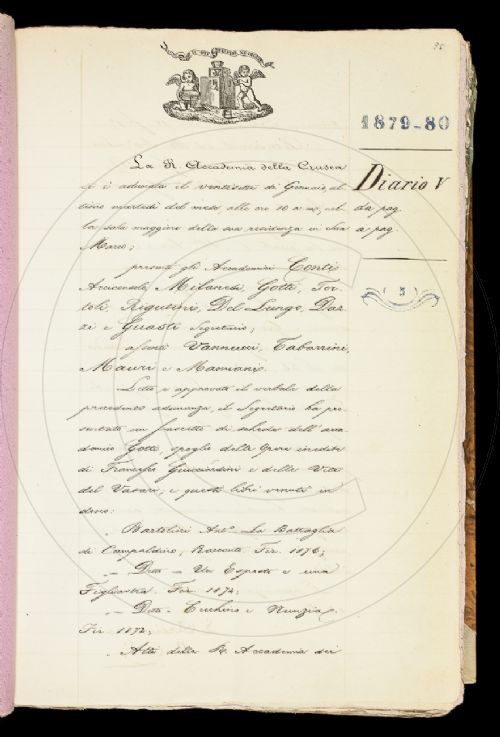 95
1879-80
La R. Accademia della Crusca
si è adunata il ventisette di Gennaio, ul
timo martedì del mese, alle ore 10 a. m., nel
la sala maggiore della sua residenza in San
Marco;
Diario V
da pag
a pag
( 5 )
presenti gli Accademici Conti
Arciconsolo, Milanesi, Gotti, Tor
toli, Rigutini, Del Lungo, Daz
zi e Guasti Segretario;
assenti Vannucci, Tabarrini,
Mauri e Mamiani.
Letto e approvato il verbale della
precedente adunanza, il Segretario ha pre
sentato un fascetto di schede dell'acca
demico Gotti, spoglio delle Opere inedite
di Francesco Guicciardini e delle Vite
del Vasari, e questi libri venuti in
dono:
Bartolini Ant.º La Battaglia
di Campaldino, Racconto. Fir. 1876;
— Detto — Un Esposto e una
Figliastra. Fir. 1874;
— Detto — Cecchino e Nunzia.
Fir. 1872;
Atti della R. Accademia dei